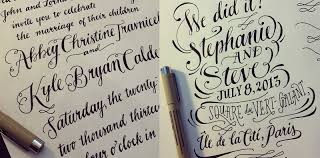 John and Lorna
invite you to celebrate
the marriage of their children
Abbey Christine Travnicek
and
Kyle Bryan Calde
Saturday, the twenty
two thousand thirteen
four o'clock in
We did it!
Stephanie
AND
Steve
JULY 8, 2013
SQUARE du VERT GALANT
Île de la Cité, Paris